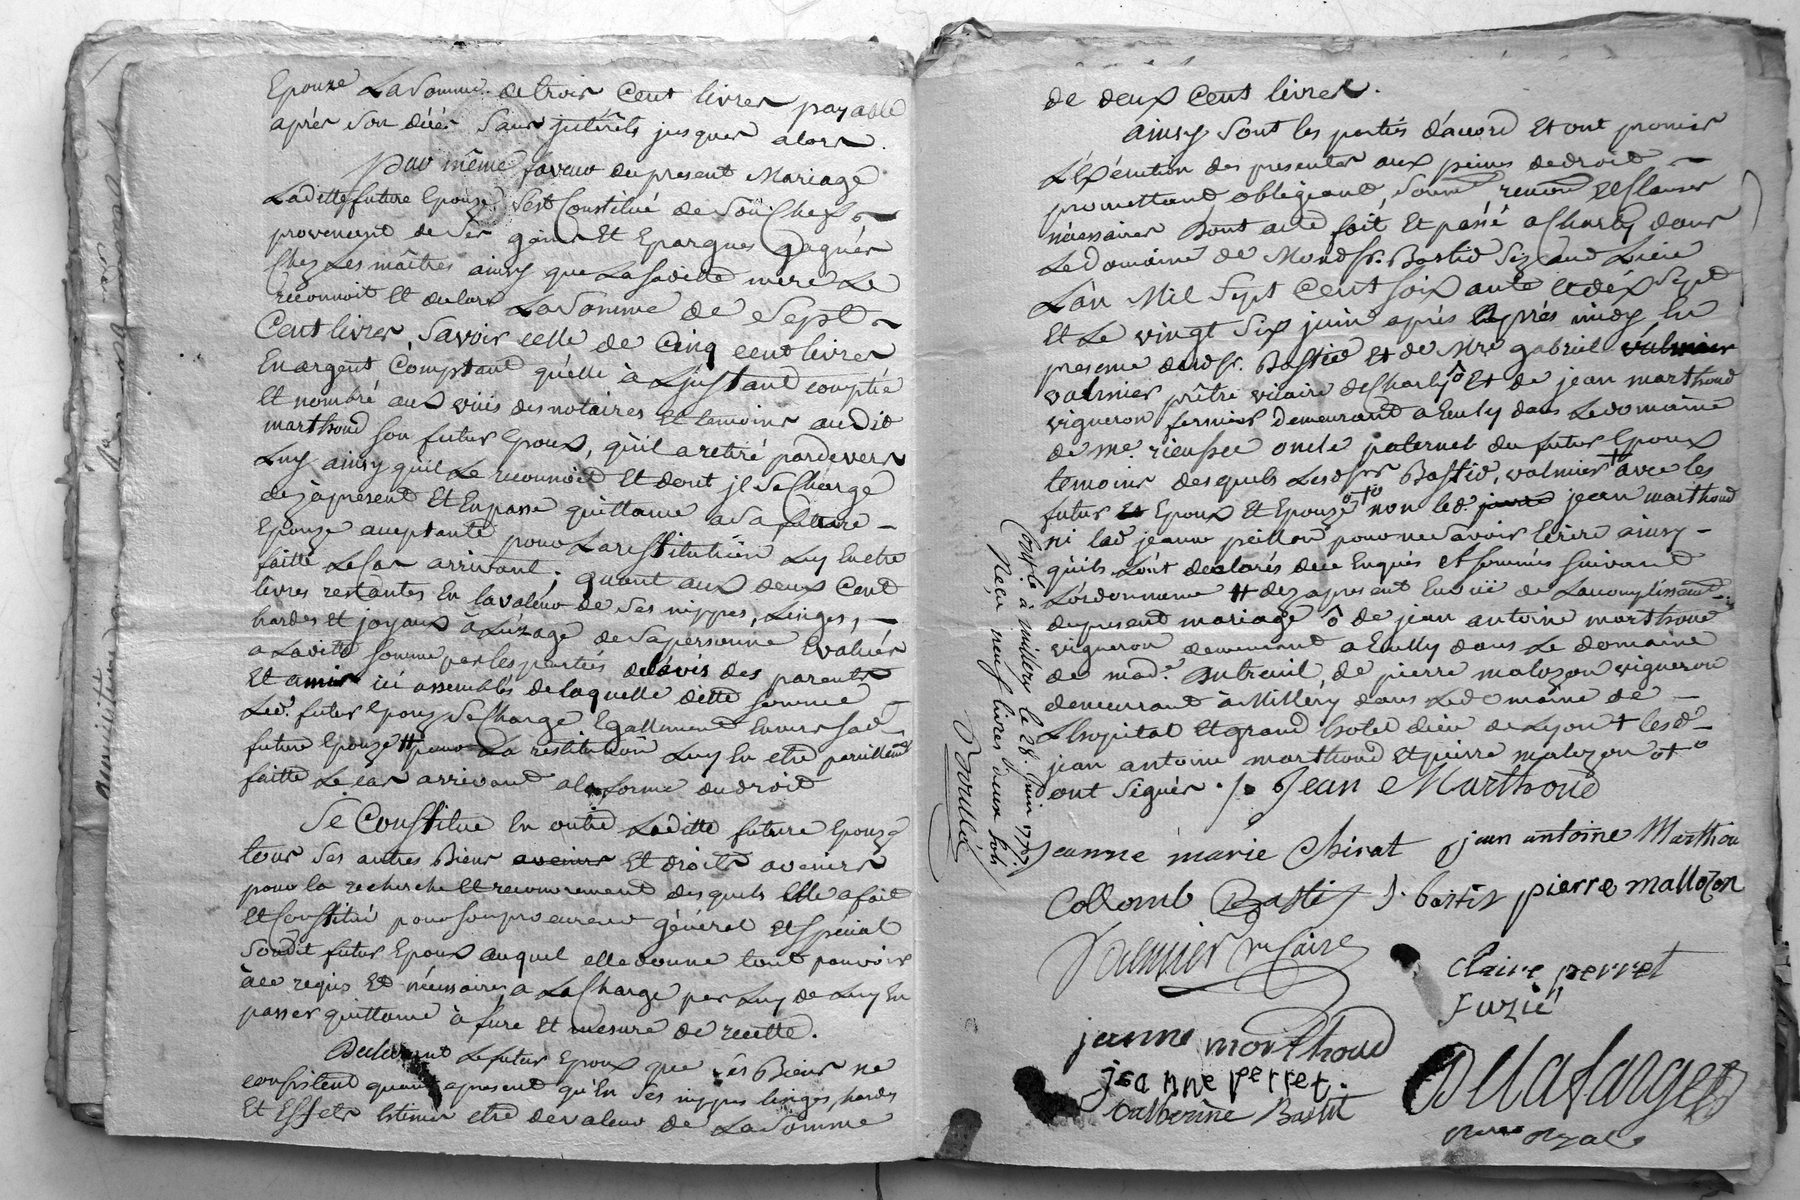 Epouze La Somme de trois Cent livres payable
après Son décés Sans jntérêts jusques alors.
Pour même faveur du present Mariage
Laditte future Epouze S'est Constitué de Son Chef
provenant de Ses gains Et Epargnes gagnés
Chez Les maîtres ainsy que Lasaditte mere Le
reconnoit Et declare La Somme de Sept
Cent livres, Savoir celle de Cinq cent livres
En argent Comptant qu'elle à L'jnstant compté
Et nombré aux vuës des notaires Et temoins audit
marthoud Son futur Epoux, qu'il a retiré pardevers
Luy ainsy qu'il Le reconnoit Et dont jl Se Charge
dez àprésent Et En passe quittance a Sa future
Epouze acceptante pour La restitution Luy En etre
faitte Le Cas arrivant; quant aux deux Cent
livres restantes En la valeur de Ses nippes, Linges,
hardes Et joyaux à L'uzage de Sa personne Evalués
a Laditte Somme par les parties de L'avis des parents
Et amis ici assemblés de laquelle ditte Somme
Led. futur Epoux Se Charge Egallement Envers Sad.
future Epouze # pour La restitution Luy En etre pareillement
faitte Le cas arrivant a la forme du droit
Se Constitue En outre Laditte future Epouze
tous Ses autres Biens avenirs Et droits avenirs
pour la recherche Et recouvrement desquels Elle a fait
Et Constitué pour Son procureur général Et Spécial
Sondit futur Epoux auquel elle donne tout pouvoir
à ce requis Et nécessaire, a La Charge par Luy de Luy En
passer quittance à fure Et mesure de recette.
Declarant Le futur Epoux que Ses Biens ne
consistent quant apresent qu'En Ses nippes linges, hardes
Et Effets Estimés etre de valeur de La Somme
de deux Cent livres.
ainsy Sont les parties d'accord Et ont promis
L'Exécution des presentes aux peines de droit
promettant, obligeant, Soum. renon. Et Clauses
nécessaires Dont acte fait Et passé a Charly dans
Le domaine de Mondsr. Bastid Sizaud Lieu
L'an Mil Sept Cent Soixante et dix Sept
Et Le vingt Six juin après Après midy En
presence dudsr. Bastid Et de Mre gabriel valmier
valmier prêtre vicaire de Charly ô Et de jean marthoud
vigneron fermier demeurant a Eculy dans Le domaine
de me. rieussec oncle paternel du futur Epoux
temoins desquels Lesdsrs Bastid, valmier avec les
futur Et Epoux Et Epouze non led. jean jean marthoud
ni lad jeanne peillon pour ne Savoir Ecrire ainsy
qu'ils L'ont declarés de ce Enquis et Sommés Suivant
L'ordonnance # dez apresent En vuë de L'accomplissement
du present mariage ô de jean antoine marthoud
vigneron demeurant a Eculy dans Le domaine
de mad. Dutreuil, de pierre malozon vigneron
demeurant à Millery dans Le domaine de
L'hopital Et grand hotel dieu de Lyon + lesd.
jean antoine marthoud Et pierre malozon
ont Signés ./. Jean Marthoud
Jeanne marie Chirat jean antoine Marthou
Collomb Bastid J. bastid pierre mallozon
Valmier vicaire
Claire perret
Fuzié
jeanne morthoud
jeanne perret.
Catherine Bastit
Delafarge
Controlé à millery le 28. Juin 1777
Reçu neuf livres deux sols